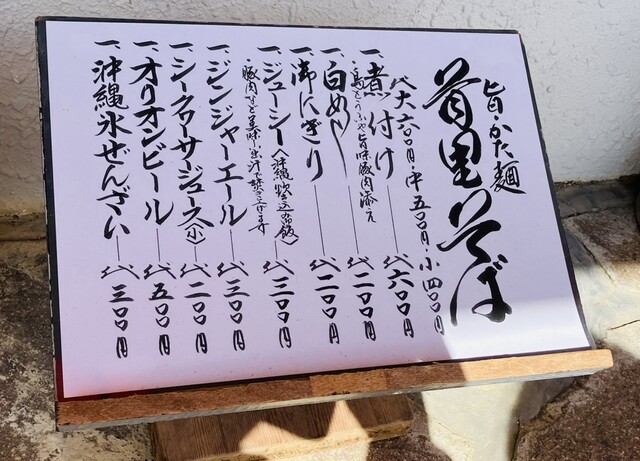 旨・かた麺
首里そば
代大六〇〇円・中五〇〇円・小四〇〇円
一、煮付け 代六〇〇円
・島とうふや旨味豚肉添え
一、白めし 代二〇〇円
一、御にぎり 代二〇〇円
一、ジューシー〈沖縄炊込御飯〉 代三〇〇円
・豚肉など美味出汁で焚き上げます
一、ジンジャーエール 代三〇〇円
一、シークワーサジュース〈小〉 代二〇〇円
一、オリオンビール 代五〇〇円
一、沖縄氷ぜんざい 代三〇〇円